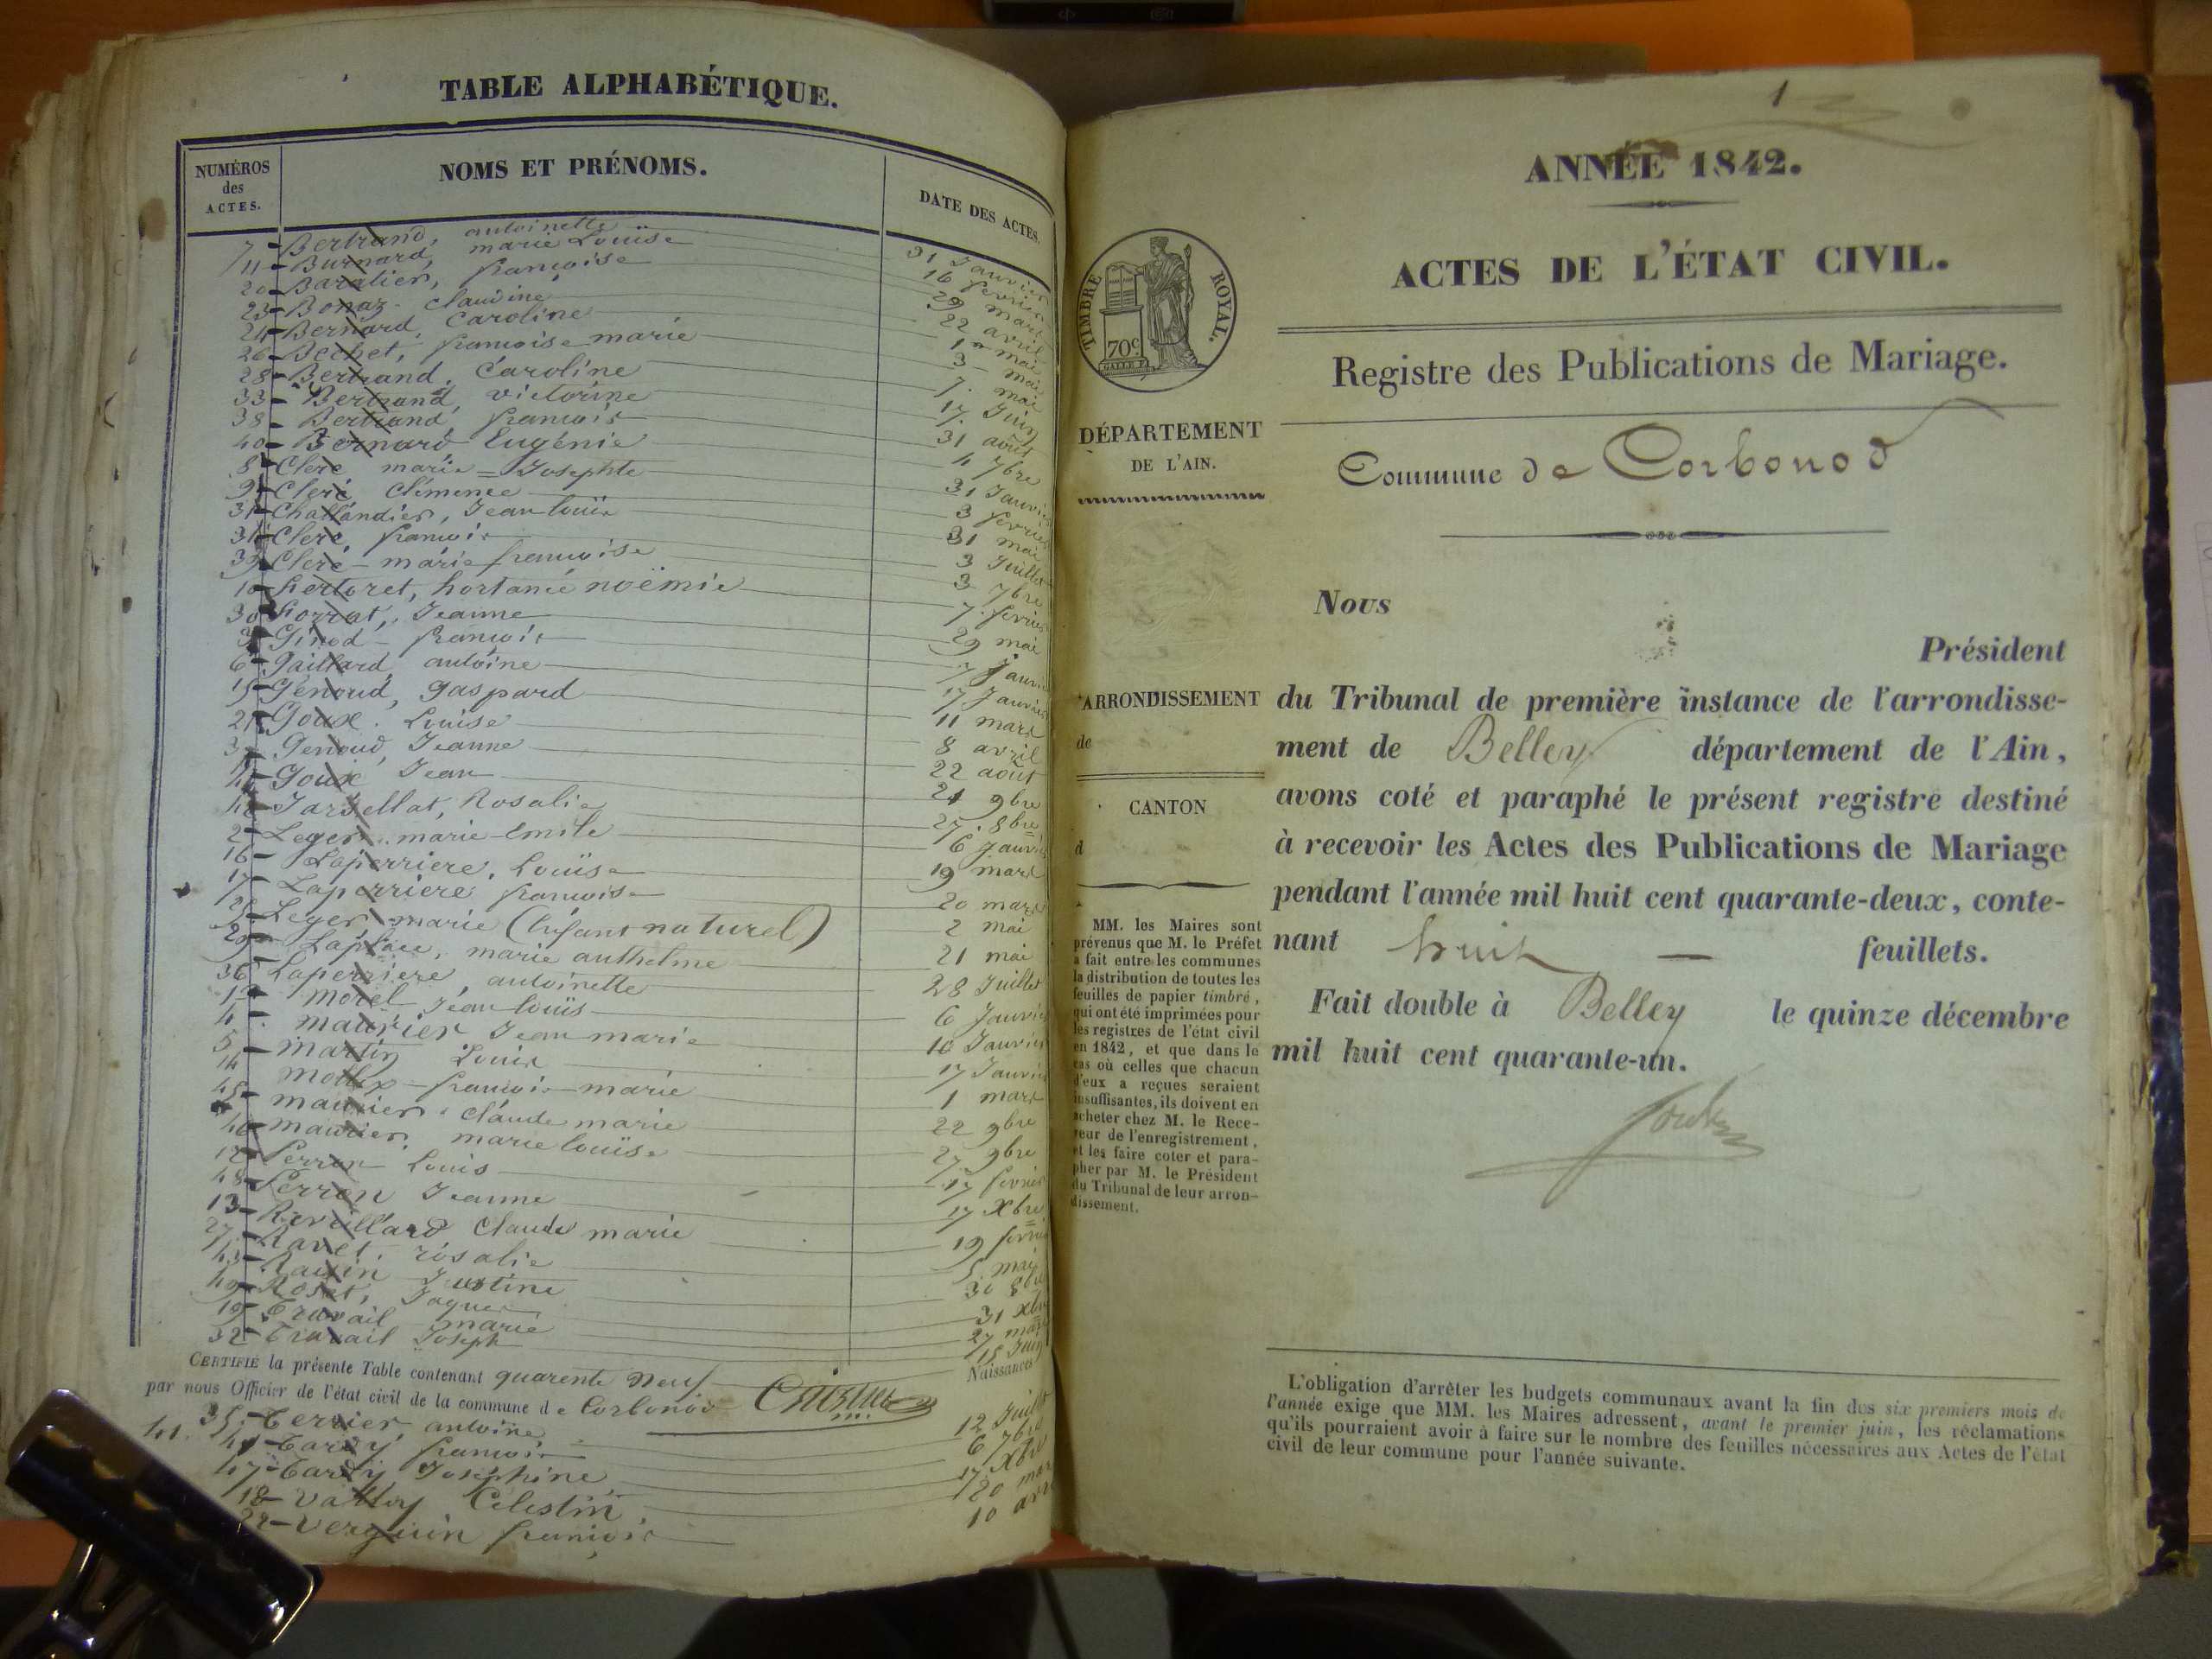 TABLE ALPHABÉTIQUE.
NUMÉROS
des
ACTES.
NOMS ET PRÉNOMS.
DATE DES ACTES.
7 Bertrand, antoinette 31 Janvier
11 Burnard, marie Louise 16 fevrier
20 Baratier, francoise 29 mars
23 Bonaz claudine 22 avril
24 Bernard, Caroline 1er mai
26 Bechet, francoise marie 3 mai
28 Bertrand, Caroline 7 mai
33 Bertrand, victorine 17 Juin
38 Bertrand, francois 31 août
40 Bernard Eugénie 4 7bre
8 Clerc marie Josephte 31 Janvier
9 Clerc Clémence 3 fevrier
31 Challandier, Jean louis 31 mai
34 Clerc francois 3 Juillet
39 Clerc marie francoise 3 7bre
10 fertoret, hortance noëmie 7 fevrier
30 forrat, Jeanne 29 mai
3 Ginod francois 7 Janvier
6 Gaillard antoine 17 Janvier
15 Génoud, gaspard 11 mars
21 Goux Louise 8 avril
37 Genoud, Jeanne 22 août
44 Goux Jean 21 9bre
42 Jarjellat, Rosalie 25 8bre
2 Leger marie Emile 6 Janvier
16 Laperriere, Louise 19 mars
17 Laperriere francoise 20 mars
25 Leger marie (Enfant naturel) 2 mai
29 Laplace, marie anthelme 21 mai
36 Laperriere, antoinette 28 Juillet
1 morel Jean louis 6 Janvier
4 maurier Jean marie 10 Janvier
5 martin Louis 17 Janvier
14 mollex francois marie 1 mars
45 maurier Claude marie 22 9bre
46 maurier, marie louise 27 9bre
12 Perron Louis 17 fevrier
48 Perron Jeanne 17 Xbre
13 Revillard Claude marie 19 fevrier
27 Ravet, rosalie 5 mai
43 Ravin Justine 30 8bre
49 Roset, Jaques 31 Xbre
19 Travail marie 27 mars
32 Travail Joseph 15 Juin
CERTIFIÉ la présente Table contenant quarente neuf Naissances
par nous Officier de l'état civil de la commune de Corbonod
35 Terrier, antoine 12 Juillet
41. 41 Tardy francois 6 7bre
47 Tardy Josephine 17 Xbre
18 Valloy Célestin 20 mars
22 Verguin francois 10 avril
1
ANNÉE 1842.
ACTES DE L'ÉTAT CIVIL.
TIMBRE ROYAL.
70c
Registre des Publications de Mariage.
DÉPARTEMENT
DE L'AIN.
Commune de Corbonod
Nous
Président
ARRONDISSEMENT
de
CANTON
d
du Tribunal de première instance de l'arrondisse-
ment de Belley département de l'Ain,
avons coté et paraphé le présent registre destiné
à recevoir les Actes des Publications de Mariage
pendant l'année mil huit cent quarante-deux, conte-
nant huit feuillets.
Fait double à Belley le quinze décembre
mil huit cent quarante-un.
MM. les Maires sont
prévenus que M. le Préfet
a fait entre les communes
la distribution de toutes les
feuilles de papier timbré,
qui ont été imprimées pour
les registres de l'état civil
en 1842, et que dans le
cas où celles que chacun
d'eux a reçues seraient
insuffisantes, ils doivent en
acheter chez M. le Rece-
veur de l'enregistrement,
et les faire coter et para-
pher par M. le Président
du Tribunal de leur arron-
dissement.
L'obligation d'arrêter les budgets communaux avant la fin des six premiers mois de
l'année exige que MM. les Maires adressent, avant le premier juin, les réclamations
qu'ils pourraient avoir à faire sur le nombre des feuilles nécessaires aux Actes de l'état
civil de leur commune pour l'année suivante.